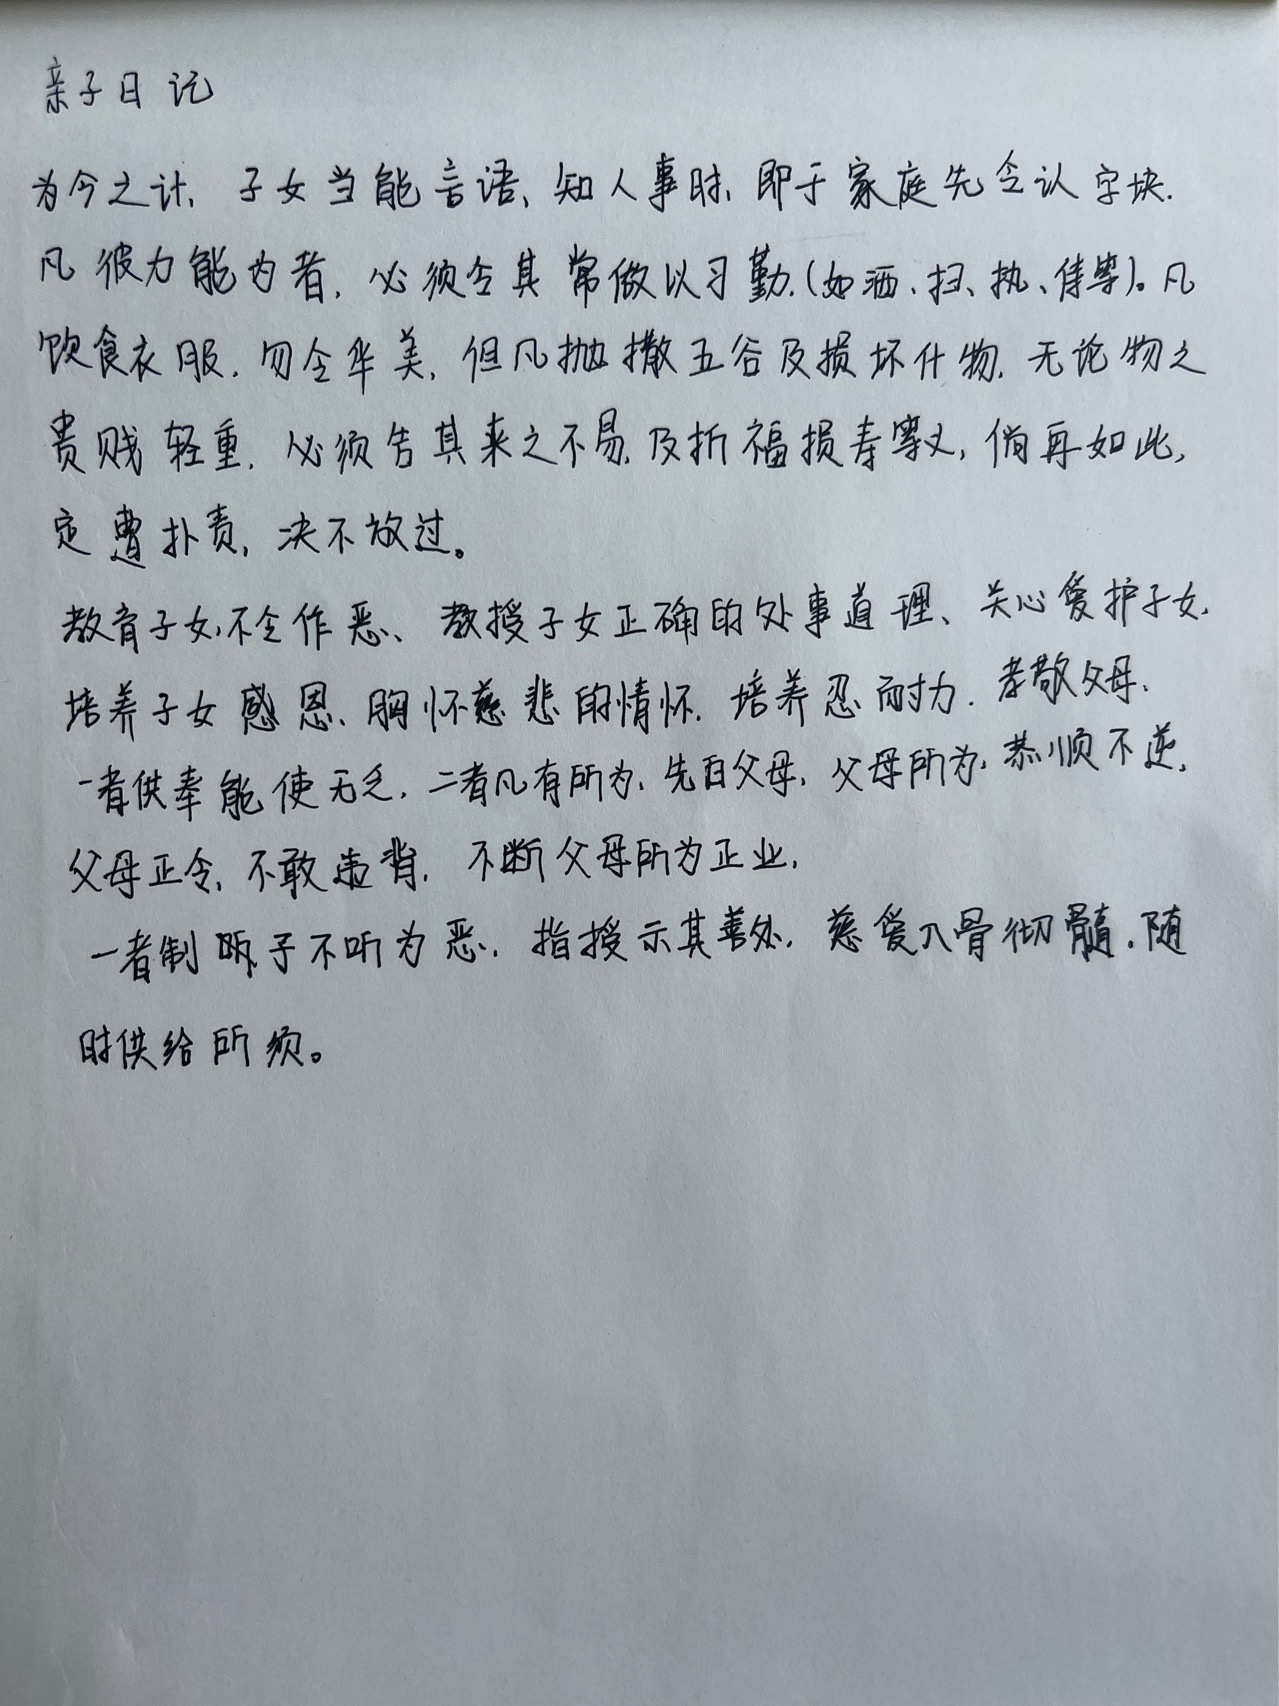 亲子日记
为今之计,子女当能言语、知人事时,即于家庭先令认字块.
凡彼力能为者,必须令其常做以习勤.(如洒、扫、执、侍等)。凡
饮食衣服,勿令华美,但凡抛撒五谷及损坏什物,无论物之
贵贱轻重,必须告其来之不易,及折福损寿等义,倘再如此,
定遭扑责,决不放过。
教育子女,不令作恶、教授子女正确的处事道理、关心爱护子女,
培养子女感恩、胸怀慈悲的情怀.培养忍耐力.孝敬父母.
一者供奉能使无乏.二者凡有所为,先白父母,父母所为,恭顺不逆,
父母正令,不敢违背,不断父母所为正业,
一者制御子不听为恶,指授示其善处,慈爱入骨彻髓,随
时供给所须。